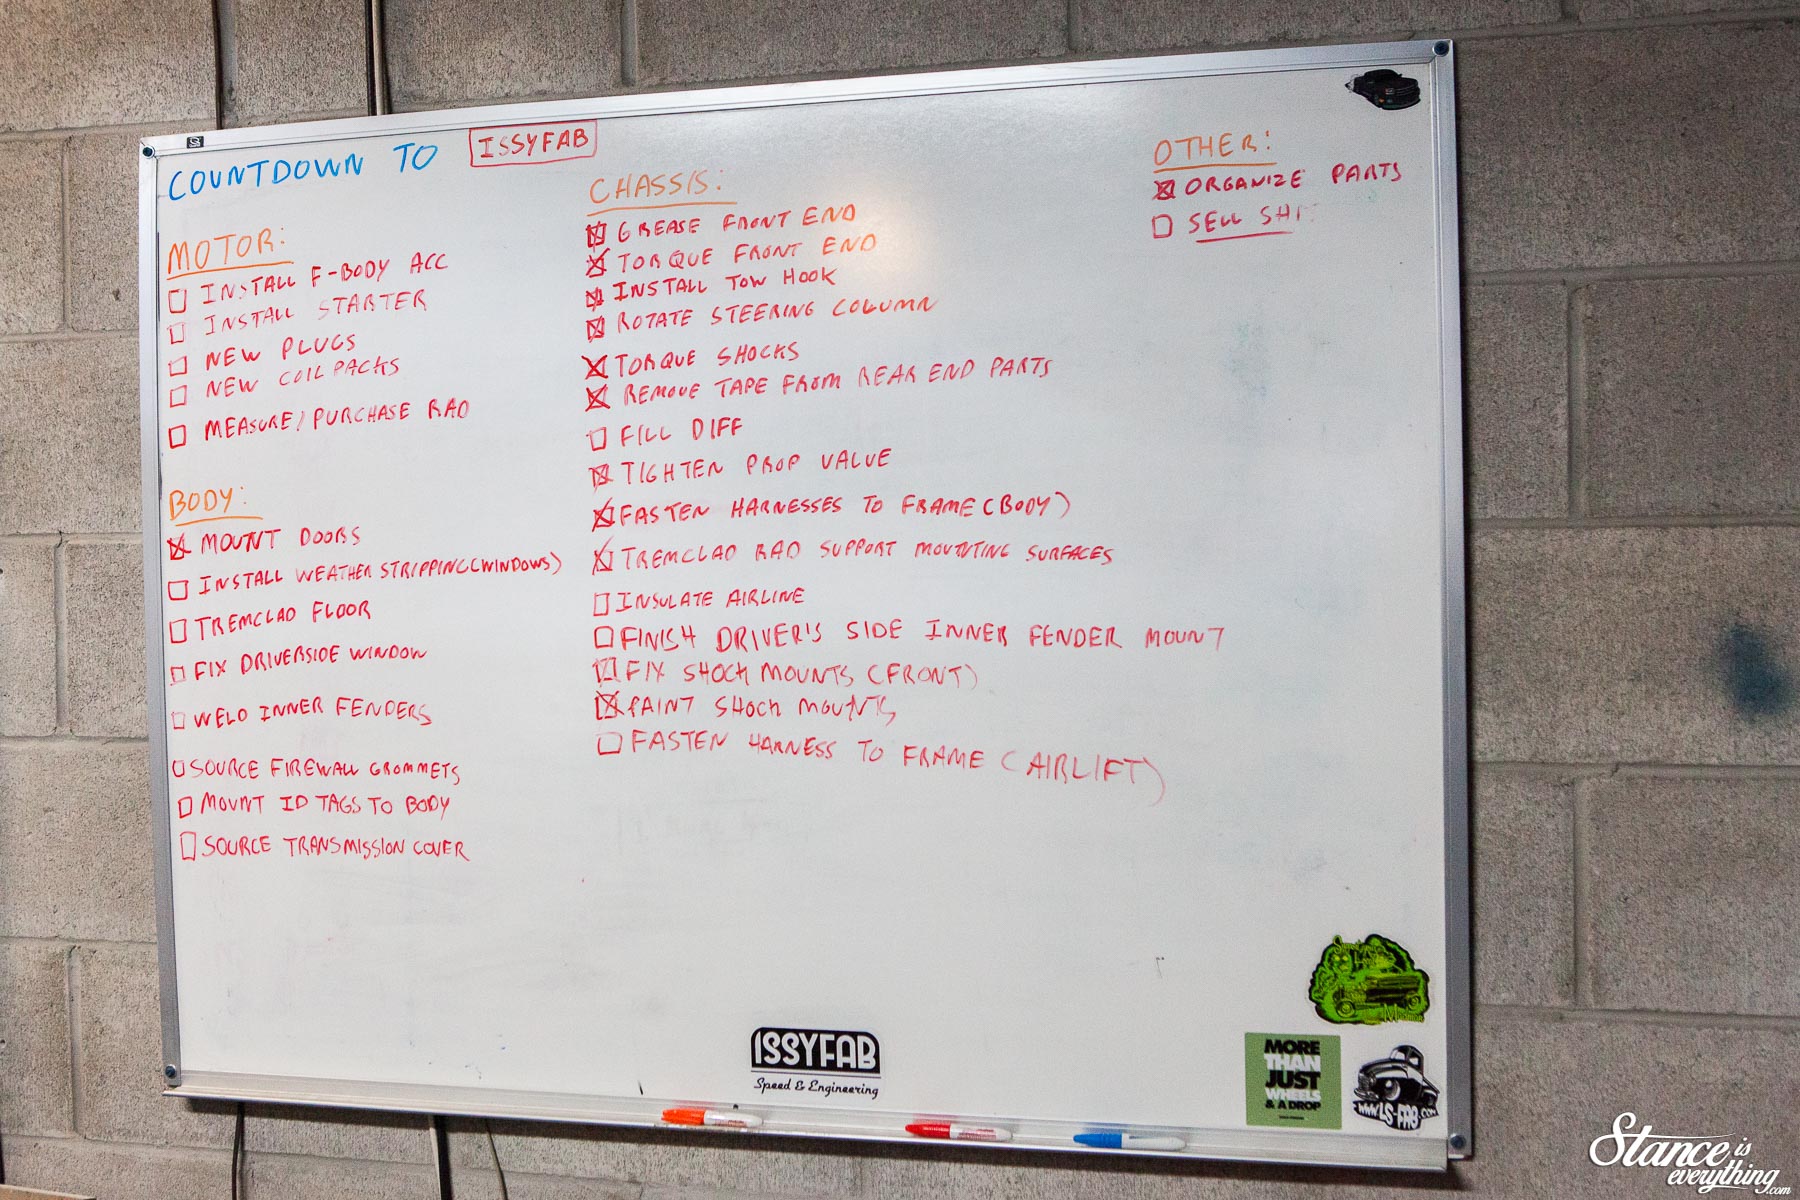 COUNTDOWN TO ISSYFAB
MOTOR:
☐ INSTALL F-BODY ACC
☐ INSTALL STARTER
☐ NEW PLUGS
☐ NEW COIL PACKS
☐ MEASURE/PURCHASE RAD
BODY:
☒ MOUNT DOORS
☐ INSTALL WEATHER STRIPPING (WINDOWS)
☐ TREMCLAD FLOOR
☐ FIX DRIVERSIDE WINDOW
☐ WELD INNER FENDERS
☐ SOURCE FIREWALL GROMMETS
☐ MOUNT ID TAGS TO BODY
☐ SOURCE TRANSMISSION COVER
CHASSIS:
☒ GREASE FRONT END
☒ TORQUE FRONT END
☒ INSTALL TOW HOOK
☒ ROTATE STEERING COLUMN
☒ TORQUE SHOCKS
☒ REMOVE TAPE FROM REAR END PARTS
☐ FILL DIFF
☒ TIGHTEN PROP VALVE
☒ FASTEN HARNESSES TO FRAME (BODY)
☒ TREMCLAD RAD SUPPORT MOUNTING SURFACES
☐ INSULATE AIRLINE
☐ FINISH DRIVER'S SIDE INNER FENDER MOUNT
☒ FIX SHOCK MOUNTS (FRONT)
☒ PAINT SHOCK MOUNTS
☐ FASTEN HARNESS TO FRAME (AIRLIFT)
OTHER:
☒ ORGANIZE PARTS
☐ SELL
ISSYFAB
Speed & Engineering
MORE
THAN
JUST
WHEELS
& A DROP
WWW.LS-FAB.COM
Stance is
everything.com